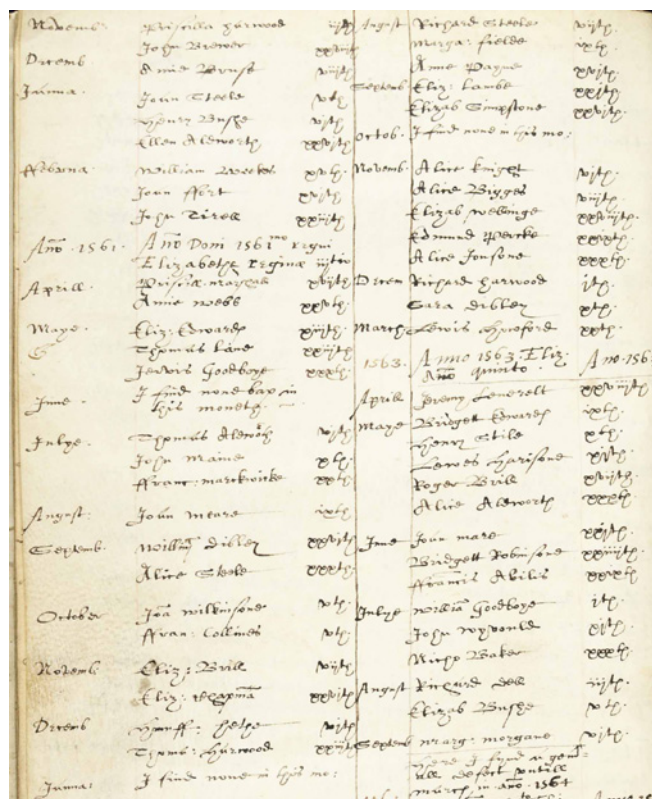 Novemb: Priscilla Harwood iijth
John Brewer
Decemb Annie Brush viijth
Janua: John Steele vth
Henry Bushe vjth
Ellen Aleworth xxvjth
ffebrua: William Weekes xvth
Joan ffort xvjth
John Tirell xxiijth
Ano . 1561 . Ano Doni 1561mo regni
Elizabethe regina iijtio
Aprill Priscill: xvijth
Annie Webb xxvth
Maye . Eliz: Edwardes xijth
Thomas Lane xxijth
Jervis Goodboye xxxth
June . I find none bap in
this moneth .
Julye . Thomas Aleworth vjth
John Maine xth
ffranc: Marckwicke xxth
August : John Meare ixth
Septemb . Willm Dibley xxvjth
Alice Steele xxxth
October Joa Wilkinsone vth
ffran: Collines
Novemb Eliz: Brill vijth
Eliz: Chapma xxvjth
Decemb Humff: Hethe vijth
Thoms: Harwood
Janua: I find none in this mo:
August Richard Steele viijth
Marga: fielde ixth
Anne Payne xvijth
Septemb Eliz: Lambe xxjth
Elizab Simpstone xxvjth
Octob . I find none in this mo:
Novemb . Alice Knight vjth
Alice Bigges viijth
Elizab Webbinge xxviijth
Edmund Percke xxixth
Alice Jonsone xxxth
Decem Richard Harwood jth
Sara Dibley xth
March Lewis Hunford xxth
1563 . Anno 1563 . Eliz . Ano . 156
Ano quinto .
Aprill Jeremy Leverett xxviijth
Maye Bridgett Edwardes ixth
Henry Stile xth
Lewes Harisone xijth
Roger Brill xvijth
Alice Aleworth xxxth
June Joan Mare xxjth
Bridgett Robinsone xxiiijth
ffrancis xxixth
Julye Willia Goodboye jth
John xjth
Baker xxxth
August Richard Dee iijth
Elizab Bushe vth
Septemb Marg: Morgane vjth
Here I fynd a gen
all defect untill
March, in ano . 1564